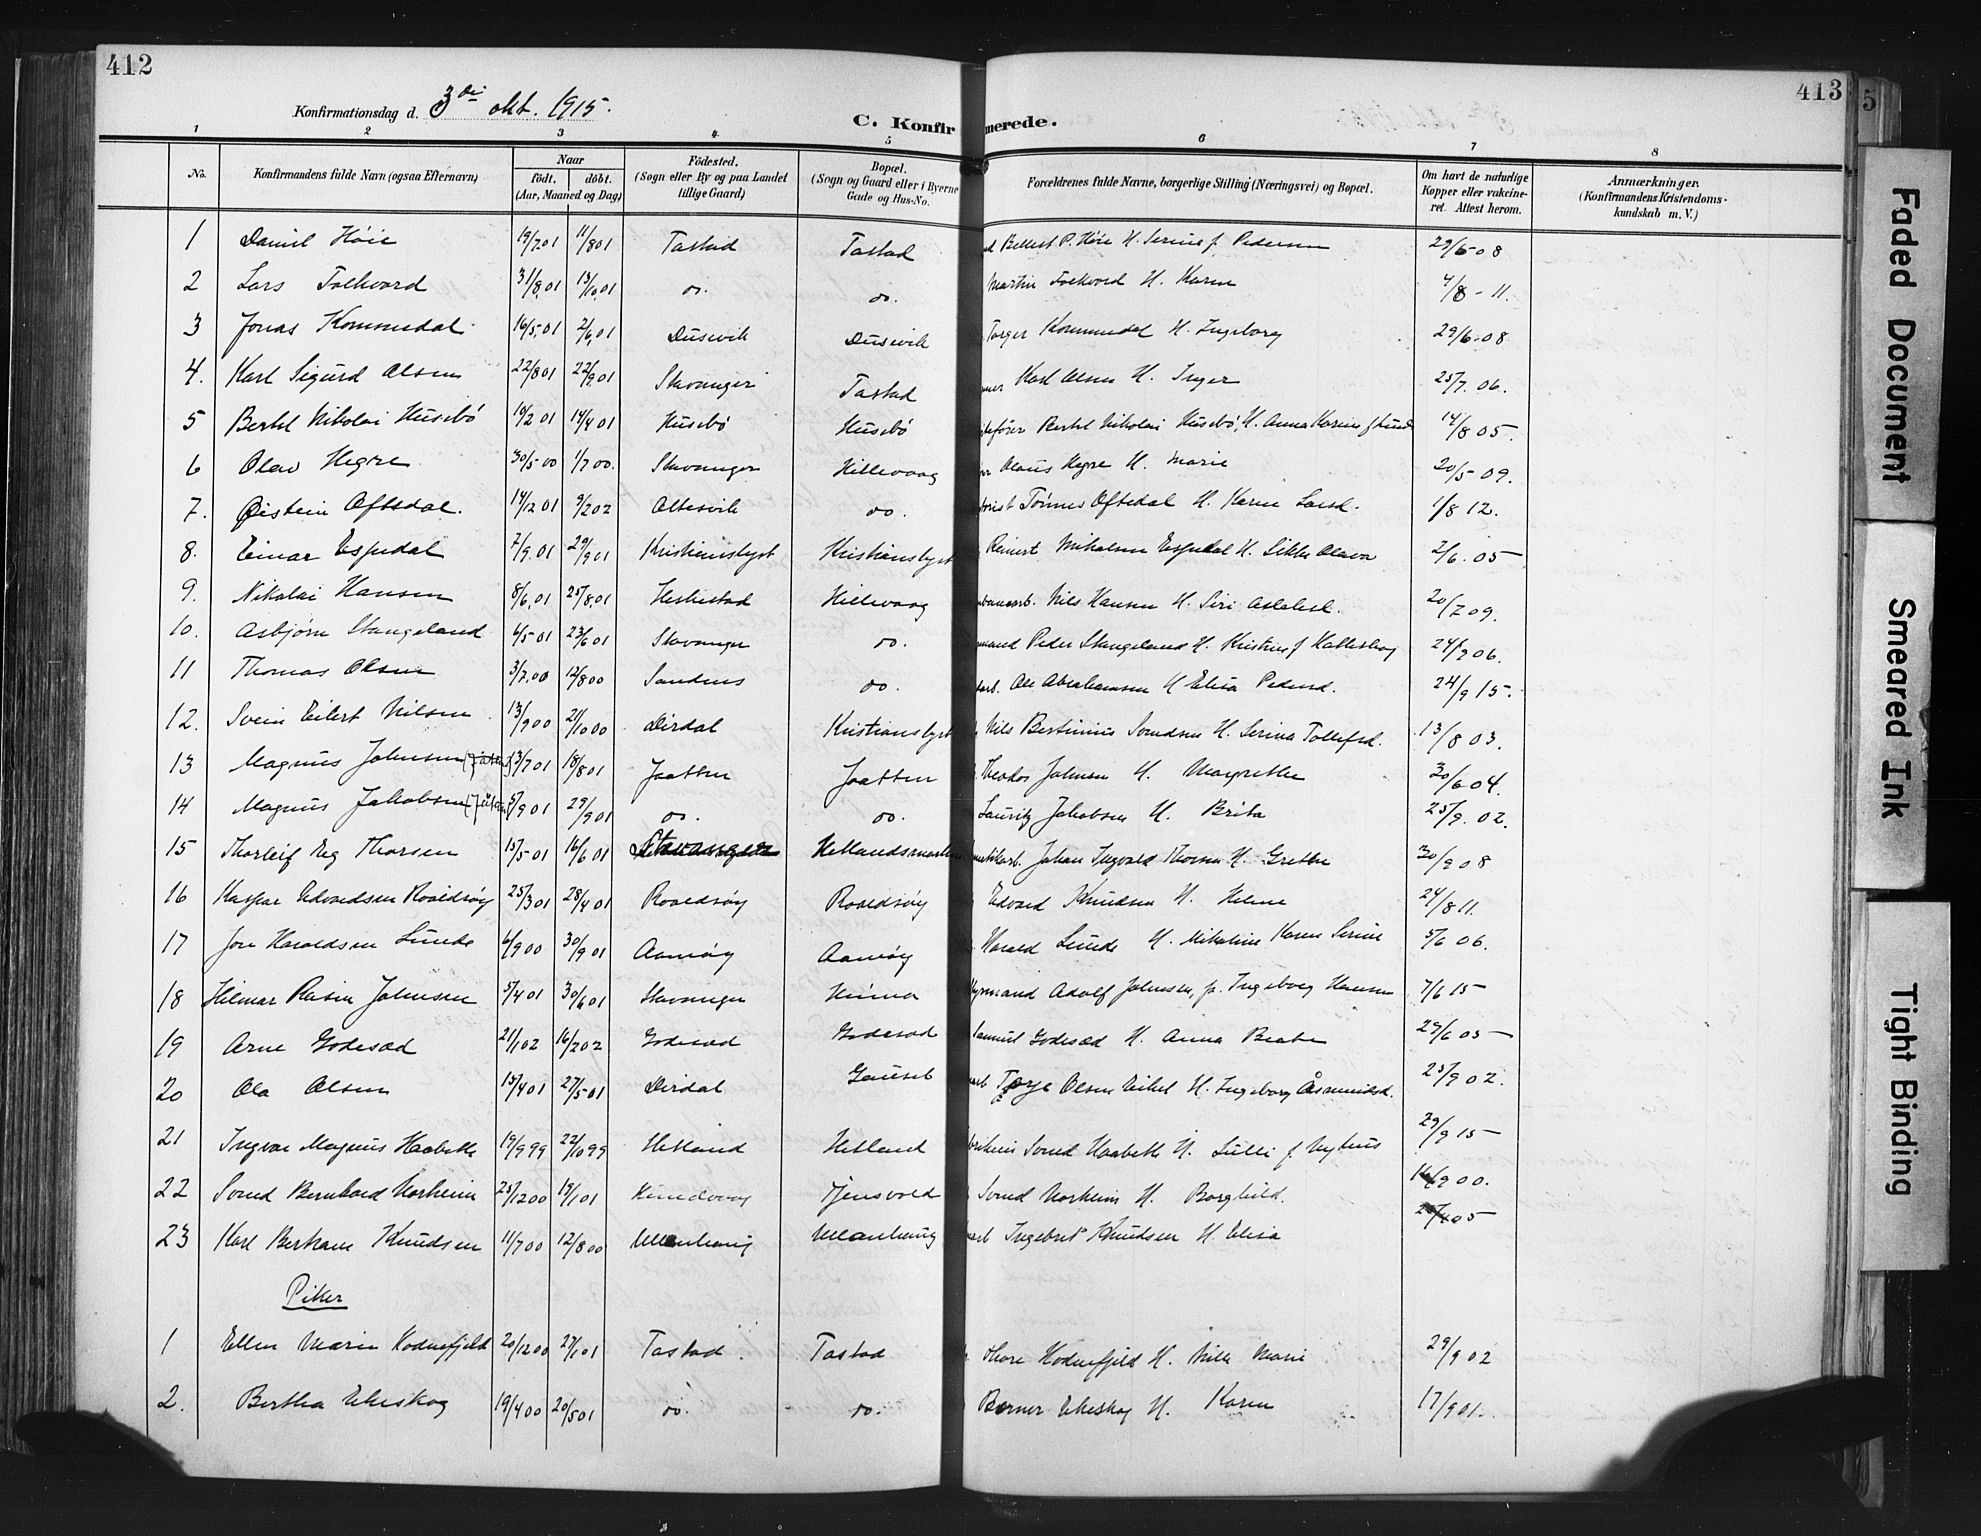 412
413
5
Konfirmationsdag d. 3di okt. 1915.
C. Konfirmerede.
1 2 3 4 5 6 7 8
No. Konfirmandens fulde Navn (ogsaa Efternavn) Naar födt. döbt. (Aar, Maaned og Dag) Födested. (Sogn eller By og paa Landet tillige Gaard) Bopæl. (Sogn og Gaard eller i Byerne Gade og Hus-No. Forældrenes fulde Navne, borgerlige Stilling (Næringsvei) og Bopæl. Om havt de naturlige Kopper eller vakcineret. Attest herom. Anmærkninger. (Konfirmandens Kristendomskundskab m. V.)
1 Daniel Høie 19/7 01 11/8 01 Tastad Tastad P. Høie H. Serine f. Pedersen 29/6-08
2 Lars Folkvord 31/8.01 13/10.01 do. do. Martin Folkvord H. Karen 4/8-11.
3 Jonas Kommedal 16/5.01 2/6.01 Dusevik Dusevik Torger Kommedal H. Ingeborg 29/6-08
4. Karl Sigurd Olsen 22/8 01 22/9.01 Stavanger Tastad Karl Olsen H. Inger 25/7. 06.
5 Bertel Nikolai Husebö 10/2 01 14/4 01 Husebö Husebö Bertel Nikolai Husebö, H. Anna Karine f Lund 14/8 05.
6 Olav Hegre 30/5-00 1/7 00. Stavanger Hillevaag Olaus Hegre H. Marie 20/5-09.
7. Øistein Oftedal. 14/12 01 9/2 02 Altesvik do. Tønnes Oftedal H. Karen Larsd. 1/8 12.
8. Einar Espedal 7/9. 01 29/9 01 Kristianslyst Kristianslyst Reinert Mikalsen Espedal H. Sikke Olava 2/6. 05
9. Nikolai Hansen 8/6.01 25/8.01 Heskestad Hillevaag Nils Hansen H. Siri Aslaksd. 20/7 09.
10. Asbjørn Stangeland 6/5-01 23/6 01 Stavanger do. Peder Stangeland H. Kristine f Hatteskog 24/9 06.
11 Thomas Olsen 3/7.00 12/8 00 Sandnes do. Ole Abrahamsen H Elisa Pedersd. 24/9 15.
12. Svein Eilert Nilsen 13/9 00 21/10 00 Dirdal Kristianslyst Nils Bertinius Svendsen H. Serina Tollefsd. 13/8 03.
13 Magnus Johnsen (Jåtten) 13/7 01 18/8 01 Jaatten Jaatten Theodor Johnsen H. Margrethe 30/6 04.
14 Magnus Jakobsen (Jåtten) 5/9 01 29/9 01 do. do. Lauritz Jakobsen H. Brita 25/9. 02.
15 Thorleif Eeg Thorsen 15/5 01 16/6 01 Stavanger Hetlandsmarken Johan Ingvald Thorsen H. Grethe 30/9 08
16 Kaspar Edvardsen Roaldsøy 25/3 01 28/4 01 Roaldsøy Roaldsøy Edvard Knudsen H. Helene 24/8 11.
17 Jon Haraldsen Lunde 6/9 00 30/9 01 Aamøy Aamøy Harald Lunde H. Mikaline Karen Serine 5/6 06.
18 Hilmar Rasin Johnsen 5/4 01 30/6 01 Stavanger Hinna Adolf Johnsen, f. Ingeborg Hansen 7/6 15
19 Arne Godesæd 21/1 02 16/2 02 Godesæd Godesæd Samuel Godesæd H. Anna Beate 29/6 05
20 Ola Olsen 15/4 01 27/5 01 Dirdal Gausel Terje Olsen Eikel H. Ingeborg Åsmundsd. 25/9 02.
21 Ingvar Magnus Haabeth 19/9 99 22/10 99 Hetland Hetland Svend Haabeth H. Lulli f. Nyhus 29/9 15
22 Svend Bernhard Norheim 25/12 00 19/1 01 Hundvaag Tjensvold Svend Norheim H. Borghild. 16/9 00.
23 Karl Bertram Knudsen 11/7 00 12/8 00 Ullenhaug Ullenhaug Ingebret Knudsen H. Elisa 25/4 05
Piker
1 Ellen Marie Kodnefjeld 20/12 00 27/1 01 Tastad Tastad Thore Kodnefjeld H. Nille Marie 29/9 02
2. Bertha Ekeskog 19/4 00 20/5 01 do. do. Berner Ekeskog H. Karen 17/9 01.
Faded Document
Smeared Ink
Tight Binding